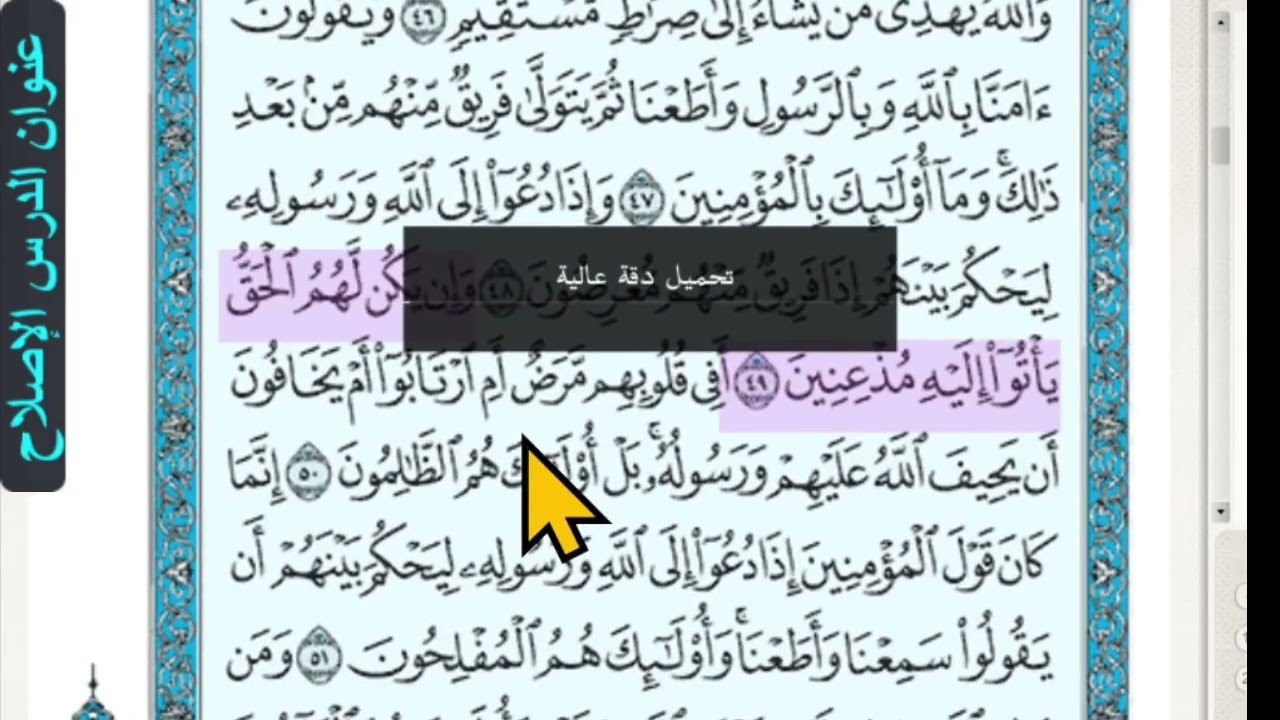 عنوان الدرس الإصلاح
وَٱللَّهُ يَهْدِى مَن يَشَآءُ إِلَىٰ صِرَٰطٍ مُّسْتَقِيمٍ ٤٦ وَيَقُولُونَ
ءَامَنَّا بِٱللَّهِ وَبِٱلرَّسُولِ وَأَطَعْنَا ثُمَّ يَتَوَلَّىٰ فَرِيقٌ مِّنْهُم مِّنۢ بَعْدِ
ذَٰلِكَ ۚ وَمَآ أُو۟لَـٰٓئِكَ بِٱلْمُؤْمِنِينَ ٤٧ وَإِذَا دُعُوٓا۟ إِلَى ٱللَّهِ وَرَسُولِهِۦ
لِيَحْكُمَ بَيْنَهُمْ إِذَا فَرِيقٌ مِّنْهُم مُّعْرِضُونَ ٤٨ وَإِن يَكُن لَّهُمُ ٱلْحَقُّ
تحميل دقة عالية
يَأْتُوٓا۟ إِلَيْهِ مُذْعِنِينَ ٤٩ أَفِى قُلُوبِهِم مَّرَضٌ أَمِ ٱرْتَابُوٓا۟ أَمْ يَخَافُونَ
أَن يَحِيفَ ٱللَّهُ عَلَيْهِمْ وَرَسُولُهُۥ ۚ بَلْ أُو۟لَـٰٓئِكَ هُمُ ٱلظَّـٰلِمُونَ ٥٠ إِنَّمَا
كَانَ قَوْلَ ٱلْمُؤْمِنِينَ إِذَا دُعُوٓا۟ إِلَى ٱللَّهِ وَرَسُولِهِۦ لِيَحْكُمَ بَيْنَهُمْ أَن
يَقُولُوا۟ سَمِعْنَا وَأَطَعْنَا ۚ وَأُو۟لَـٰٓئِكَ هُمُ ٱلْمُفْلِحُونَ ٥١ وَمَن